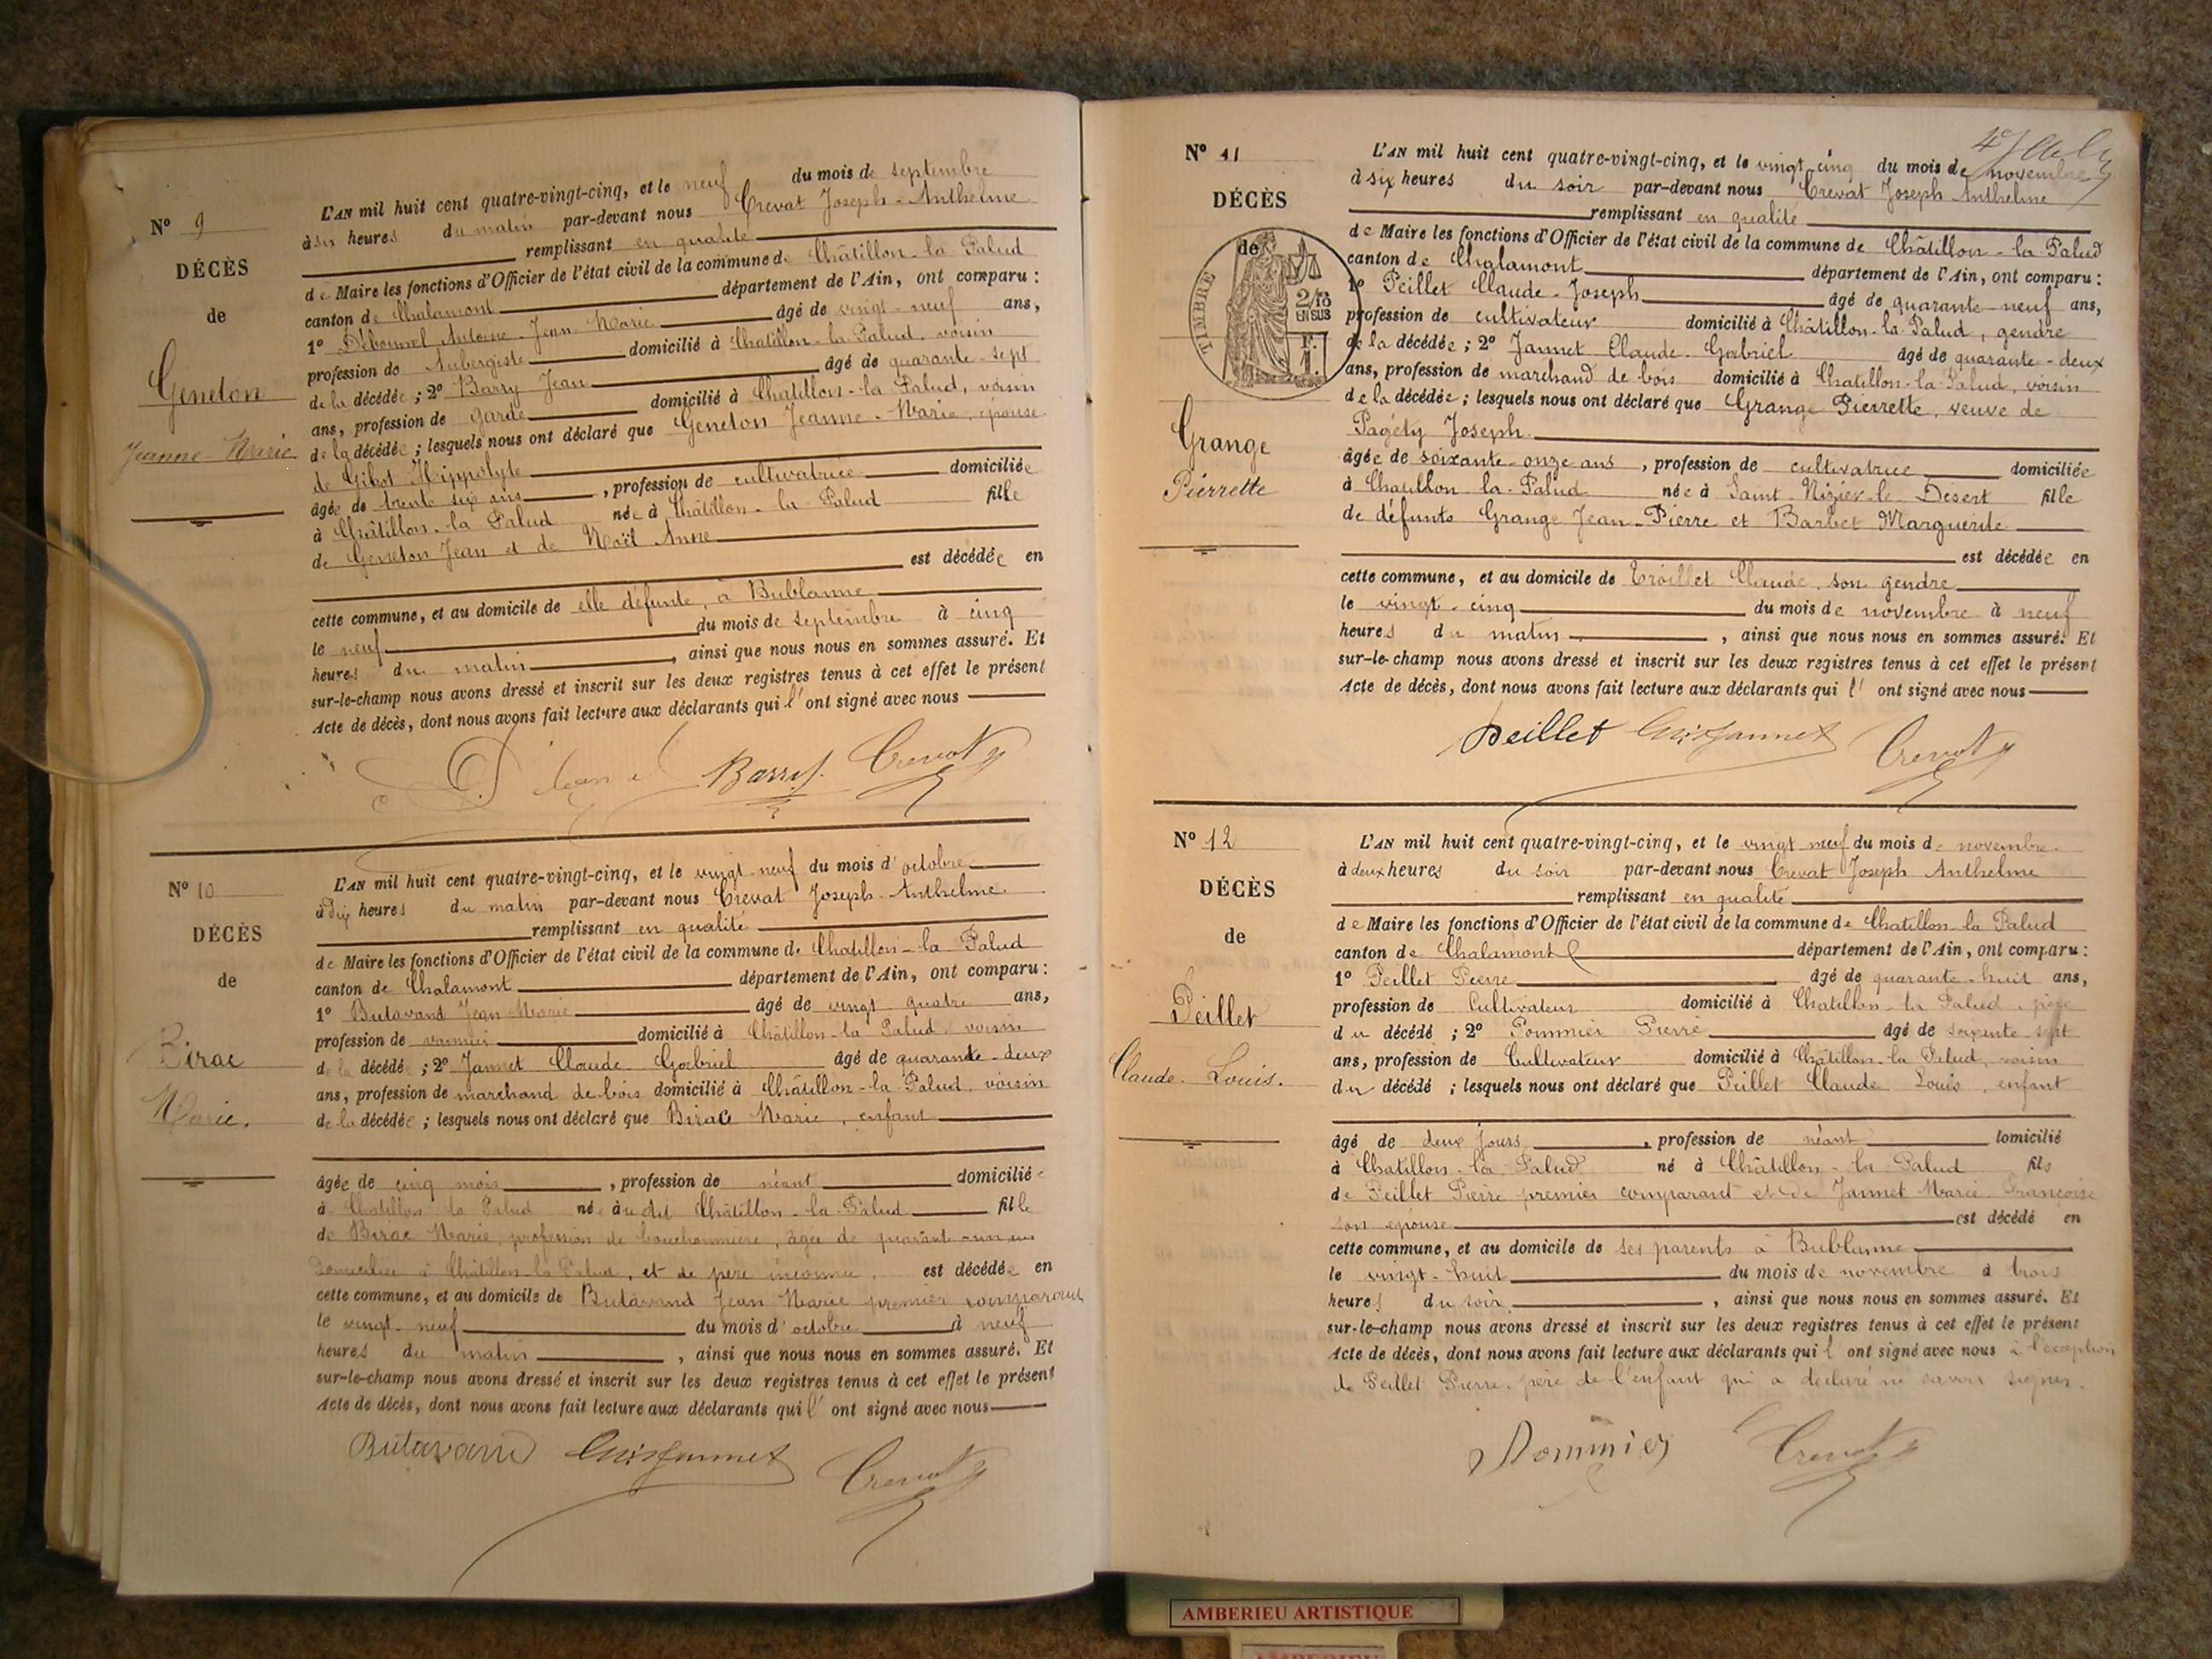 N° 9
DÉCÈS
de
Geneton
Jeanne-Marie
L'AN mil huit cent quatre-vingt-cinq, et le neuf du mois de septembre
à six heures du matin par-devant nous Crevat Joseph-Anthelme
remplissant en qualité
de Maire les fonctions d'Officier de l'état civil de la commune de Châtillon-la-Palud
canton de Chalamont département de l'Ain, ont comparu :
1° Antoine-Jean-Marie âgé de vingt-neuf ans,
profession de Aubergiste domicilié à Chatillon-la-Palud, voisin
de la décédée ; 2° Barry Jean âgé de quarante-sept
ans, profession de garde domicilié à Châtillon-la-Palud, voisin
de la décédée ; lesquels nous ont déclaré que Geneton Jeanne-Marie, épouse
de Gibot Hippolyte
âgée de trente six ans, profession de cultivatrice domiciliée
à Châtillon-la-Palud née à Châtillon-la-Palud fille
de Geneton Jean et de Noël Anne
est décédée en
cette commune, et au domicile de elle défunte, à Bublanne
le neuf du mois de septembre à cinq
heures du matin, ainsi que nous nous en sommes assuré. Et
sur-le-champ nous avons dressé et inscrit sur les deux registres tenus à cet effet le présent
Acte de décès, dont nous avons fait lecture aux déclarants qui l'ont signé avec nous
Crevat
N° 10
DÉCÈS
de
Birac
Marie.
L'AN mil huit cent quatre-vingt-cinq, et le vingt-neuf du mois d'octobre
à dix heures du matin par-devant nous Crevat Joseph-Anthelme
remplissant en qualité
de Maire les fonctions d'Officier de l'état civil de la commune de Chatillon-la-Palud
canton de Chalamont département de l'Ain, ont comparu :
1° Butavand Jean Marie âgé de vingt quatre ans,
profession de domicilié à Châtillon-la-Palud, voisin
de la décédée ; 2° Jannet Claude Gabriel âgé de quarante-deux
ans, profession de marchand de bois domicilié à Châtillon-la-Palud, voisin
de la décédée ; lesquels nous ont déclaré que Birac Marie, enfant
âgée de cinq mois, profession de néant domiciliée
à Chatillon la Palud née au dit Châtillon-la-Palud fille
de Birac Marie, profession de bouchonnière, âgée de quarante-un ans
domiciliée à Châtillon-la-Palud, et de père inconnu, est décédée en
cette commune, et au domicile de Butavand Jean-Marie premier comparant
le vingt-neuf du mois d'octobre à neuf
heures du matin, ainsi que nous nous en sommes assuré. Et
sur-le-champ nous avons dressé et inscrit sur les deux registres tenus à cet effet le présent
Acte de décès, dont nous avons fait lecture aux déclarants qui l'ont signé avec nous
Butavand Jannet Crevat
N° 11
DÉCÈS
de
TIMBRE
2/10
EN SUS
Grange
Pierrette
L'AN mil huit cent quatre-vingt-cinq, et le vingt-cinq du mois de novembre
à six heures du soir par-devant nous Crevat Joseph Anthelme
remplissant en qualité
de Maire les fonctions d'Officier de l'état civil de la commune de Châtillon-la-Palud
canton de Chalamont département de l'Ain, ont comparu :
1° Peillet Claude-Joseph âgé de quarante-neuf ans,
profession de cultivateur domicilié à Châtillon-la-Palud, gendre
de la décédée ; 2° Jannet Claude-Gabriel âgé de quarante-deux
ans, profession de marchand de bois domicilié à Chatillon-la-Palud, voisin
de la décédée ; lesquels nous ont déclaré que Grange Pierrette, veuve de
Pagéty Joseph.
âgée de soixante-onze ans, profession de cultivatrice domiciliée
à Chatillon la-Palud née à Saint-Nizier-le-Désert fille
de défunts Grange Jean-Pierre et Barbet Marguerite
est décédée en
cette commune, et au domicile de Claude, son gendre
le vingt-cinq du mois de novembre à neuf
heures du matin, ainsi que nous nous en sommes assuré. Et
sur-le-champ nous avons dressé et inscrit sur les deux registres tenus à cet effet le présent
Acte de décès, dont nous avons fait lecture aux déclarants qui l'ont signé avec nous
Peillet Jannet Crevat
N° 12
DÉCÈS
de
Peillet
Claude-Louis.
L'AN mil huit cent quatre-vingt-cinq, et le vingt neuf du mois de novembre
à deux heures du soir par-devant nous Crevat Joseph Anthelme
remplissant en qualité
de Maire les fonctions d'Officier de l'état civil de la commune de Chatillon-la Palud
canton de Chalamont département de l'Ain, ont comparu :
1° Peillet Pierre âgé de quarante-huit ans,
profession de Cultivateur domicilié à Chatillon-la Palud, père
du décédé ; 2° Pommier Pierre âgé de soixante sept
ans, profession de Cultivateur domicilié à Châtillon-la Palud, voisin
du décédé ; lesquels nous ont déclaré que Peillet Claude Louis, enfant
âgé de deux jours, profession de néant domicilié
à Chatillon-la-Palud né à Châtillon-la-Palud fils
de Peillet Pierre premier comparant et de Jannet Marie-Françoise
son épouse est décédé en
cette commune, et au domicile de ses parents à Bublanne
le vingt-huit du mois de novembre à trois
heures du soir, ainsi que nous nous en sommes assuré. Et
sur-le-champ nous avons dressé et inscrit sur les deux registres tenus à cet effet le présent
Acte de décès, dont nous avons fait lecture aux déclarants qui l'ont signé avec nous à l'exception
de Peillet Pierre, père de l'enfant qui a déclaré ne savoir signer.
Pommier Crevat
AMBERIEU ARTISTIQUE
AMBERIEU